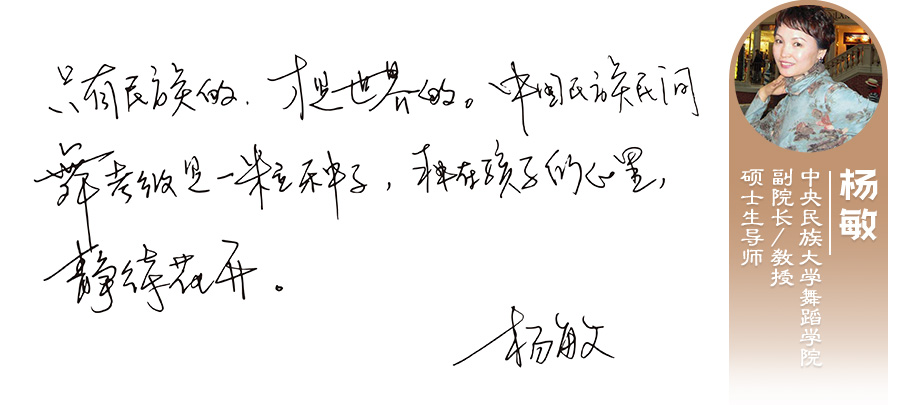 只有民族的，才是世界的。中国民族民间
舞考级是一粒种子，种在孩子的心里，
静待花开。
杨敏
杨敏
中央民族大学舞蹈学院
副院长/教授
硕士生导师